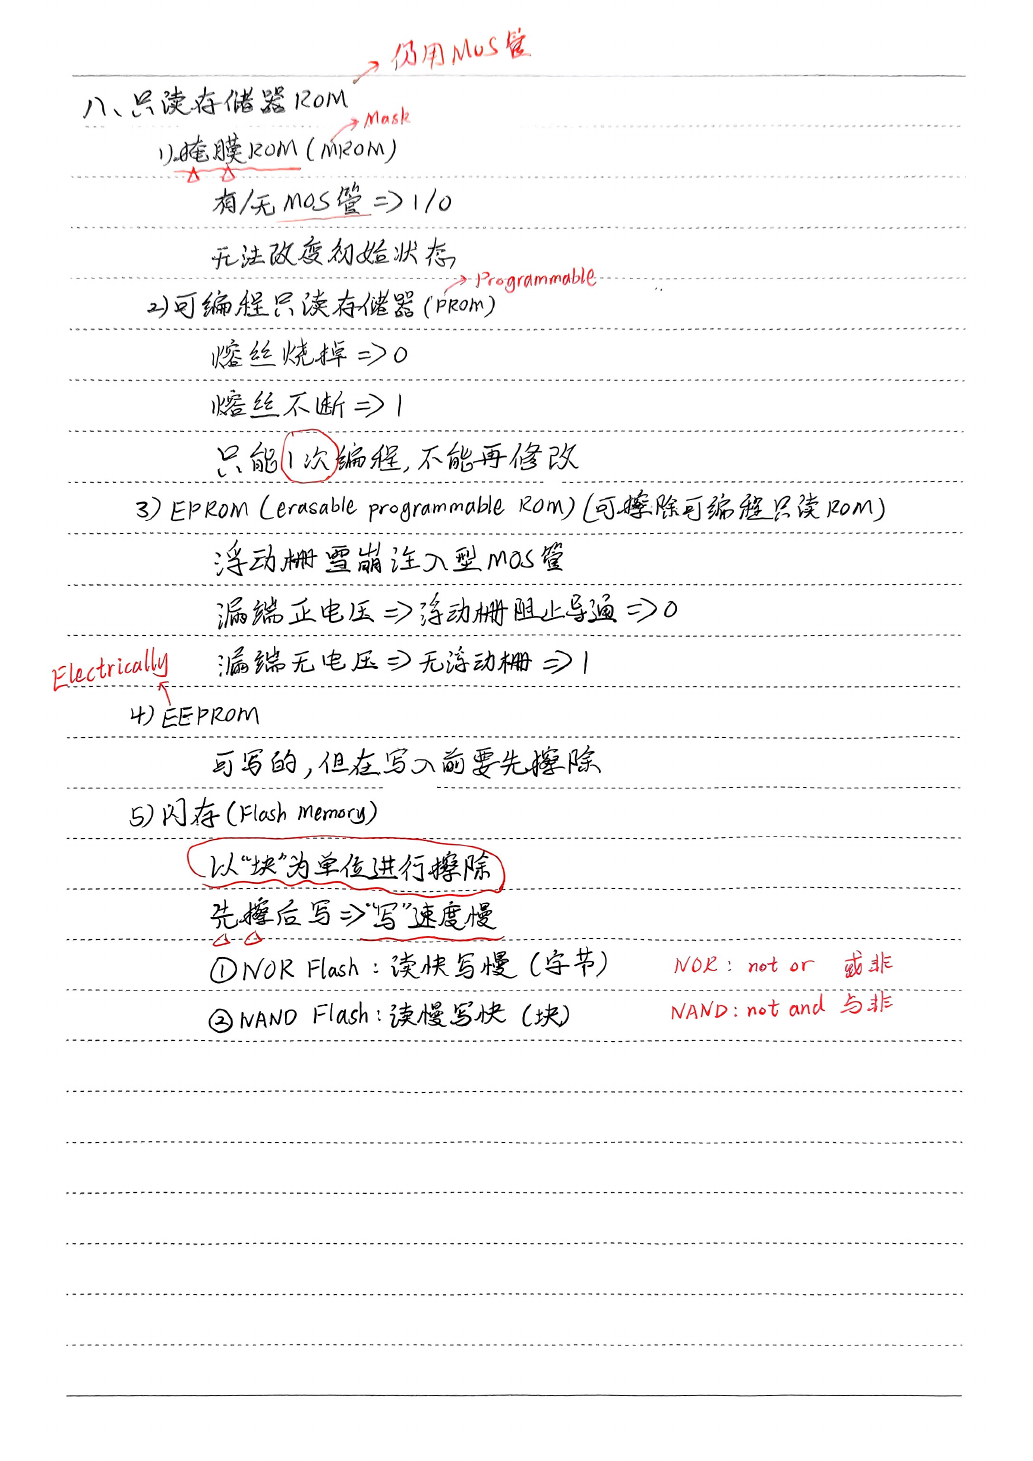 仍用MOS管
八、只读存储器ROM
Mask
1)掩膜ROM(MROM)
有/无MOS管=>1/0
无法改变初始状态
Programmable
2)可编程只读存储器(PROM)
熔丝烧掉=>0
熔丝不断=>1
只能1次编程,不能再修改
3)EPROM(erasable programmable ROM)(可擦除可编程只读ROM)
浮动栅雪崩注入型MOS管
漏端正电压=>浮动栅阻止导通=>0
漏端无电压=>无浮动栅=>1
Electrically
4)EEPROM
可写的,但在写入前要先擦除
5)闪存(Flash Memory)
以“块”为单位进行擦除
先擦后写=>“写”速度慢
①NOR Flash:读快写慢(字节) NOR: not or 或非
②NAND Flash:读慢写快(块) NAND: not and 与非